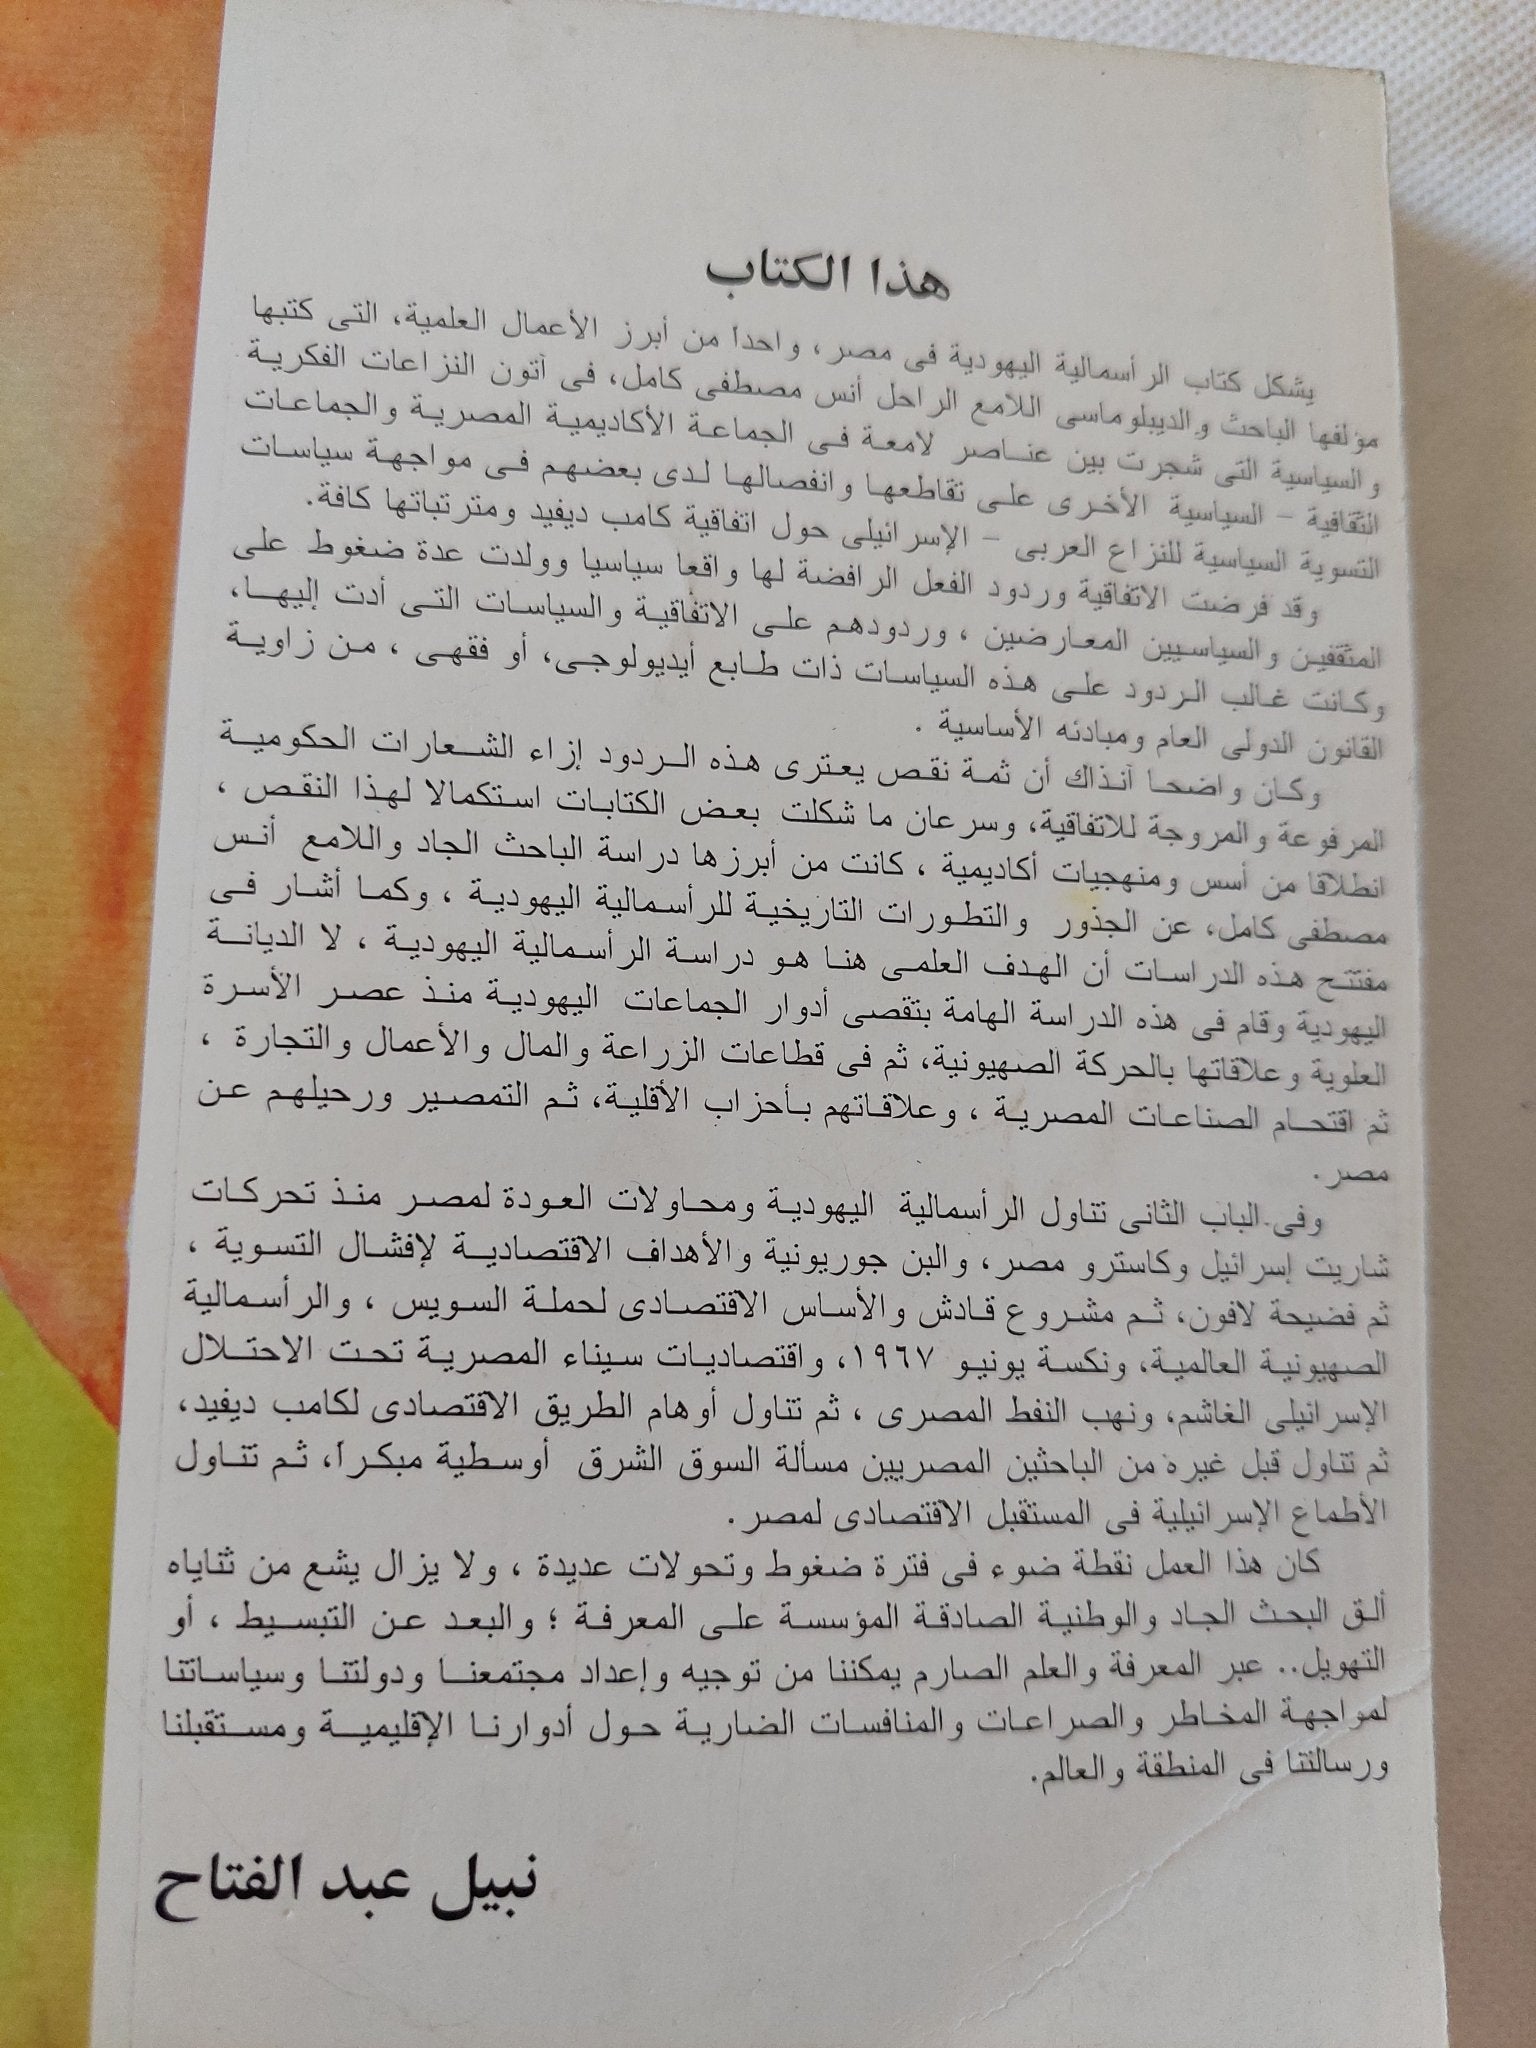 هذا الكتاب
يشكل كتاب الرأسمالية اليهودية فى مصر، واحدا من أبرز الأعمال العلمية، التى كتبها
مؤلفها الباحث والديبلوماسى اللامع الراحل أنس مصطفى كامل، فى آتون النزاعات الفكرية
والسياسية التى شجرت بين عناصر لامعة فى الجماعة الأكاديمية المصرية والجماعات
الثقافية – السياسية الأخرى على تقاطعها وانفصالها لدى بعضهم فى مواجهة سياسات
التسوية السياسية للنزاع العربى – الإسرائيلى حول اتفاقية كامب ديفيد ومترتباتها كافة.
وقد فرضت الاتفاقية وردود الفعل الرافضة لها واقعا سياسيا وولدت عدة ضغوط على
المثقفين والسياسيين المعارضين ، وردودهم على الاتفاقية والسياسات التى أدت إليها،
وكانت غالب الردود على هذه السياسات ذات طابع أيديولوجى، أو فقهى ، من زاوية
القانون الدولى العام ومبادئه الأساسية .
وكان واضحا آنذاك أن ثمة نقص يعترى هذه الردود إزاء الشعارات الحكومية
المرفوعة والمروجة للاتفاقية، وسرعان ما شكلت بعض الكتابات استكمالا لهذا النقص ،
انطلاقا من أسس ومنهجيات أكاديمية ، كانت من أبرزها دراسة الباحث الجاد واللامع أنس
مصطفى كامل، عن الجذور والتطورات التاريخية للرأسمالية اليهودية ، وكما أشار فى
مفتتح هذه الدراسات أن الهدف العلمى هنا هو دراسة الرأسمالية اليهودية ، لا الديانة
اليهودية وقام فى هذه الدراسة الهامة بتقصى أدوار الجماعات اليهودية منذ عصر الأسرة
العلوية وعلاقاتها بالحركة الصهيونية، ثم فى قطاعات الزراعة والمال والأعمال والتجارة ،
ثم اقتحام الصناعات المصرية ، وعلاقاتهم بأحزاب الأقلية، ثم التمصير ورحيلهم عن
مصر.
وفى الباب الثانى تناول الرأسمالية اليهودية ومحاولات العودة لمصر منذ تحركات
شاريت إسرائيل وكاسترو مصر، والبن جوريونية والأهداف الاقتصادية لإفشال التسوية ،
ثم فضيحة لافون، ثم مشروع قادش والأساس الاقتصادى لحملة السويس ، والرأسمالية
الصهيونية العالمية، ونكسة يونيو ١٩٦٧، واقتصاديات سيناء المصرية تحت الاحتلال
الإسرائيلى الغاشم، ونهب النفط المصرى ، ثم تناول أوهام الطريق الاقتصادى لكامب ديفيد،
ثم تناول قبل غيره من الباحثين المصريين مسألة السوق الشرق أوسطية مبكراً، ثم تناول
الأطماع الإسرائيلية فى المستقبل الاقتصادى لمصر.
كان هذا العمل نقطة ضوء فى فترة ضغوط وتحولات عديدة ، ولا يزال يشع من ثناياه
ألق البحث الجاد والوطنية الصادقة المؤسسة على المعرفة ؛ والبعد عن التبسيط ، أو
التهويل.. عبر المعرفة والعلم الصارم يمكننا من توجيه وإعداد مجتمعنا ودولتنا وسياساتنا
لمواجهة المخاطر والصراعات والمنافسات الضارية حول أدوارنا الإقليمية ومستقبلنا
ورسالتنا فى المنطقة والعالم.
نبيل عبد الفتاح